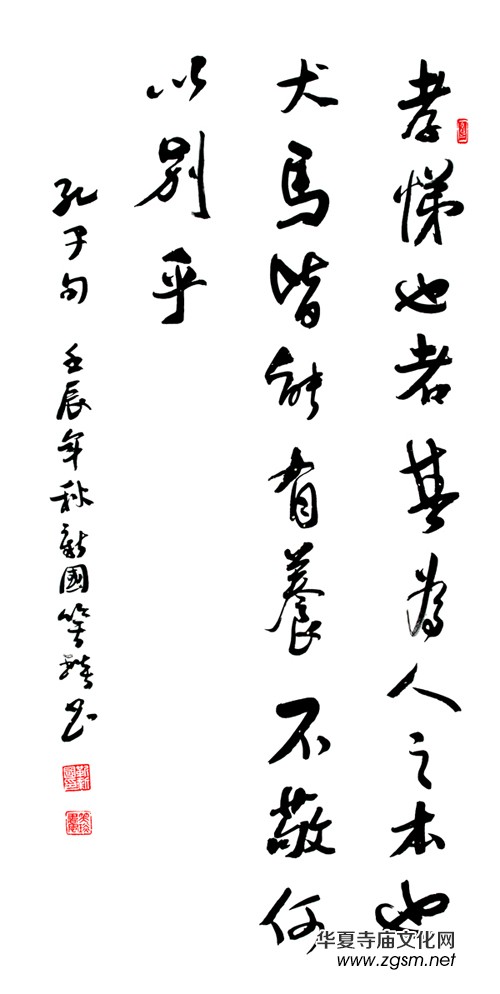 孝悌也者其為人之本也
犬馬皆能有養不敬何
以別乎
孔子句 壬辰年秋新國等 書
华夏寺庙文化网
www.zgsm.net